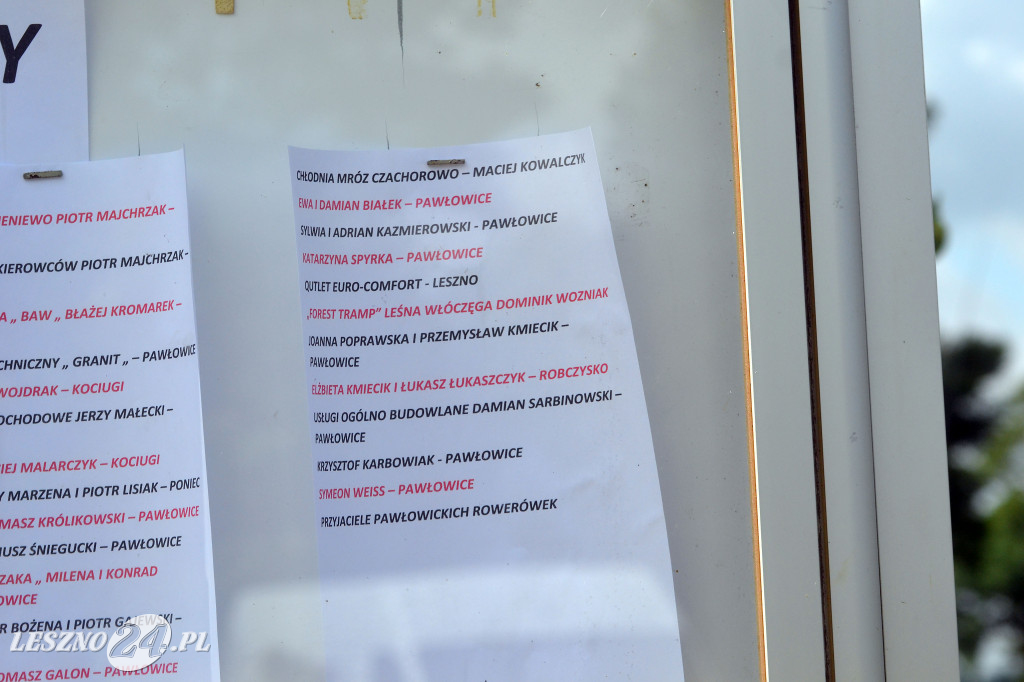 Y
ENIEWO PIOTR MAJCHRZAK –
KIEROWCÓW PIOTR MAJCHRZAK-
A „ BAW „ BŁAŻEJ KROMAREK –
CHNICZNY „ GRANIT „ – PAWŁOWICE
WOJDRAK – KOCIUGI
OCHODOWE JERZY MAŁECKI –
IEJ MALARCZYK – KOCIUGI
Y MARZENA I PIOTR LISIAK – PONIEC
MASZ KRÓLIKOWSKI – PAWŁOWICE
IUSZ ŚNIEGUCKI – PAWŁOWICE
ZAKA „ MILENA I KONRAD
OWICE
R BOŻENA I PIOTR GAJEWSKI –
OMASZ GALON – PAWŁOWICE
CHŁODNIA MRÓZ CZACHOROWO – MACIEJ KOWALCZYK
EWA I DAMIAN BIAŁEK – PAWŁOWICE
SYLWIA I ADRIAN KAZMIEROWSKI - PAWŁOWICE
KATARZYNA SPYRKA – PAWŁOWICE
OUTLET EURO-COMFORT - LESZNO
„FOREST TRAMP” LEŚNA WŁÓCZĘGA DOMINIK WOZNIAK
JOANNA POPRAWSKA I PRZEMYSŁAW KMIECIK –
PAWŁOWICE
ELŻBIETA KMIECIK I ŁUKASZ ŁUKASZCZYK – ROBCZYSKO
USŁUGI OGÓLNO BUDOWLANE DAMIAN SARBINOWSKI –
PAWŁOWICE
KRZYSZTOF KARBOWIAK - PAWŁOWICE
SYMEON WEISS – PAWŁOWICE
PRZYJACIELE PAWŁOWICKICH ROWERÓWEK
LESZNO24.PL